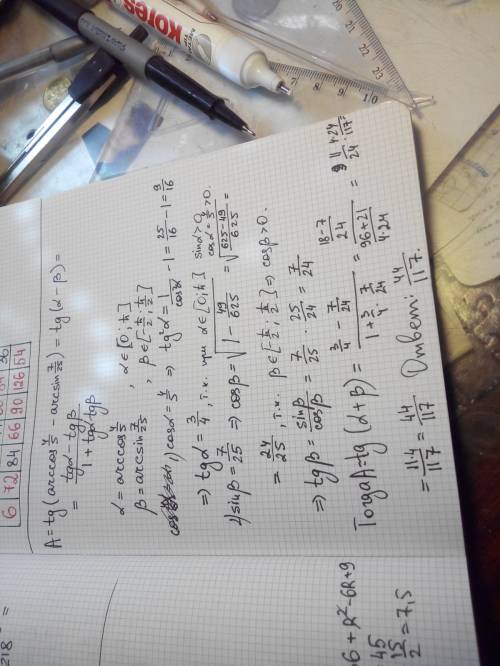 Kores
6 72 84 66 90 126 54
A = tg(arccos 4/5 - arcsin 7/25) = tg(α - β) =
= (tgα - tgβ)/(1 + tgα tgβ)
α = arccos 4/5, α ∈ [0; π]
β = arcsin 7/25, β ∈ [-π/2; π/2]
1) cosα = 4/5 ⇒ tg²α = 1/cos²α - 1 = 25/16 - 1 = 9/16
⇒ tgα = 3/4, т.к. при α ∈ [0; π] sinα > 0, cosα = 4/5 > 0.
2) sinβ = 7/25 ⇒ cosβ = √(1 - 49/625) = √((625 - 49)/625) =
= 24/25, т.к. β ∈ [-π/2; π/2] ⇒ cosβ > 0.
⇒ tgβ = sinβ/cosβ = 7/25 · 25/24 = 7/24
Тогда A = tg(α + β) = (3/4 - 7/24)/(1 + 3/4 · 7/24) = ((18 - 7)/24)/((96 + 21)/(4 · 24)) = (11 · 4 · 24)/(24 · 117) =
= (11 · 4)/117 = 44/117 Ответ: 44/117.
218 =
6 + R² - 6R + 9
45
15/2 = 7,5